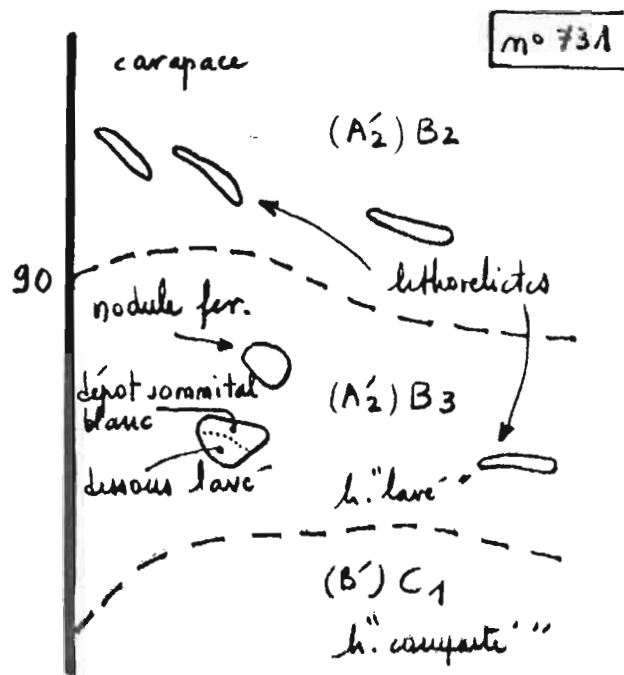 nº 731
carapace
(A'2) B2
90
lithorelictes
nodule fer.
(A'2) B3
dépot sommital
blanc
dessous lavé
h. "lavé"
(B') C1
h. "compacte"